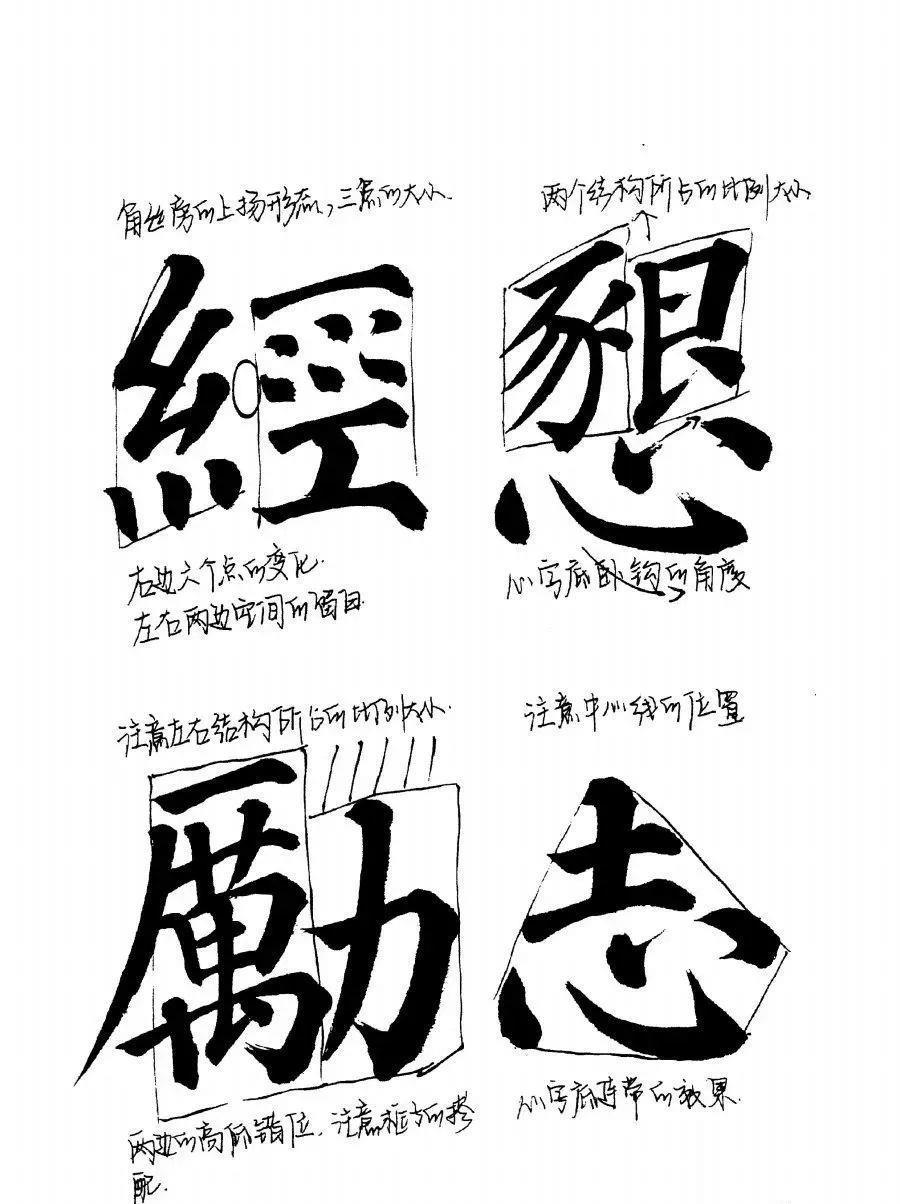 角丝旁的上扬形态，三点的大小.
两个结构所占的比例大小
經
懇
右边六个点的变化.
左右两边空间的留白.
心字底卧钩的角度
注意左右结构所占的比例大小.
注意中心线的位置
勵
志
两边的高低错位，注意框方的搭
配.
心字底连带的效果.